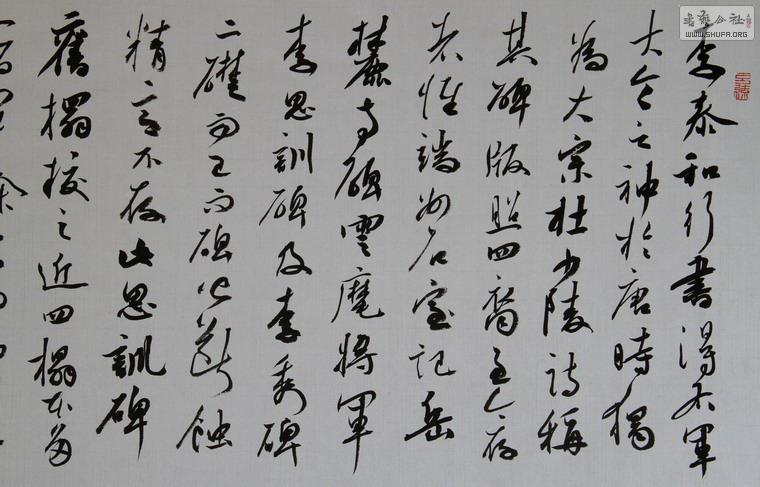 李泰和行书得右軍
大令之神於唐時獨
為大宗杜少陵詩稱
其碑版照四裔至今存
者惟端州石室記岳
麓寺碑雲麾將軍
李思訓碑及李秀碑
二礎而已而碑皆斷蝕
精
不存此思訓碑
舊搨校之近四搨本
書法公社
WWW.SHUFA.ORG